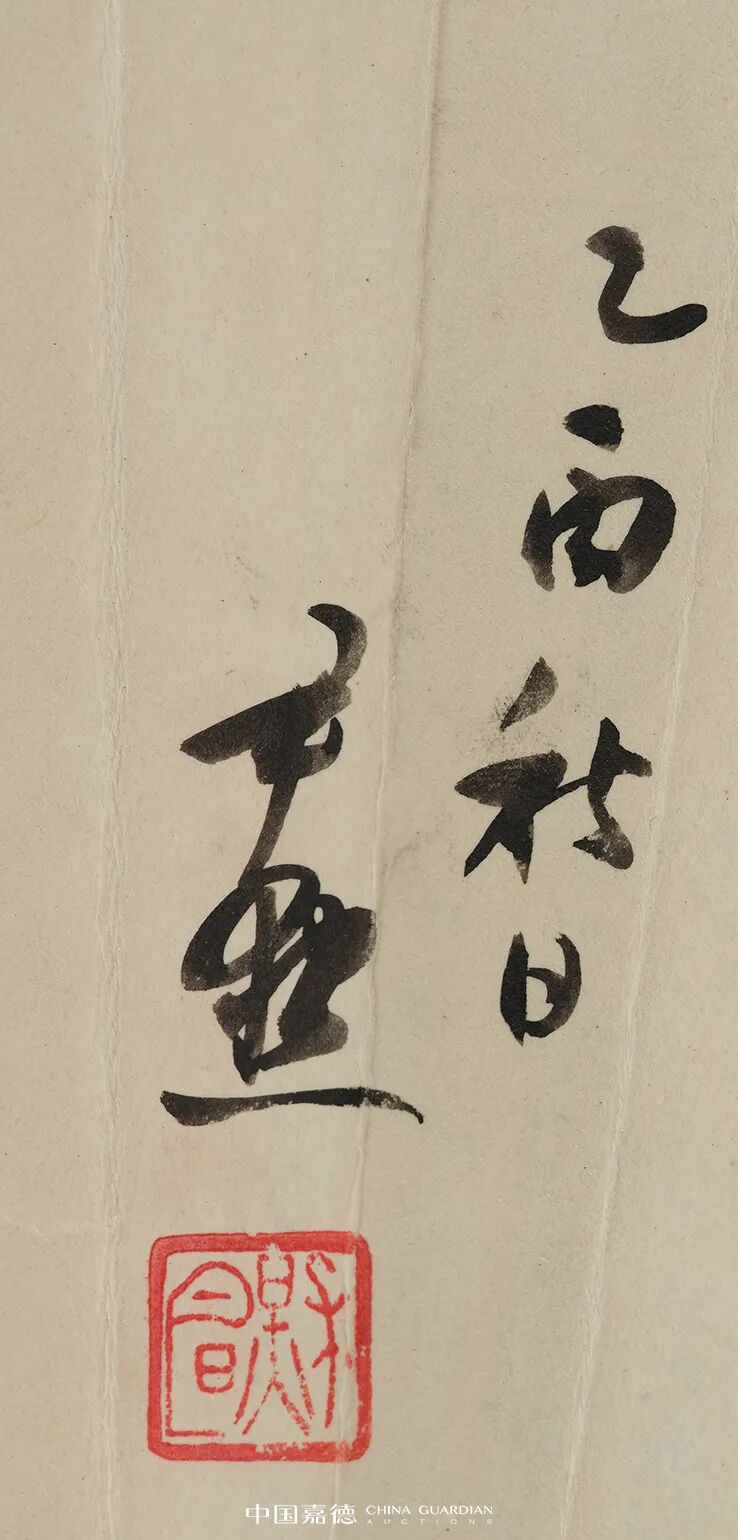 乙酉秋日
尹默
中国嘉德 CHINA GUARDIAN
AUCTIONS